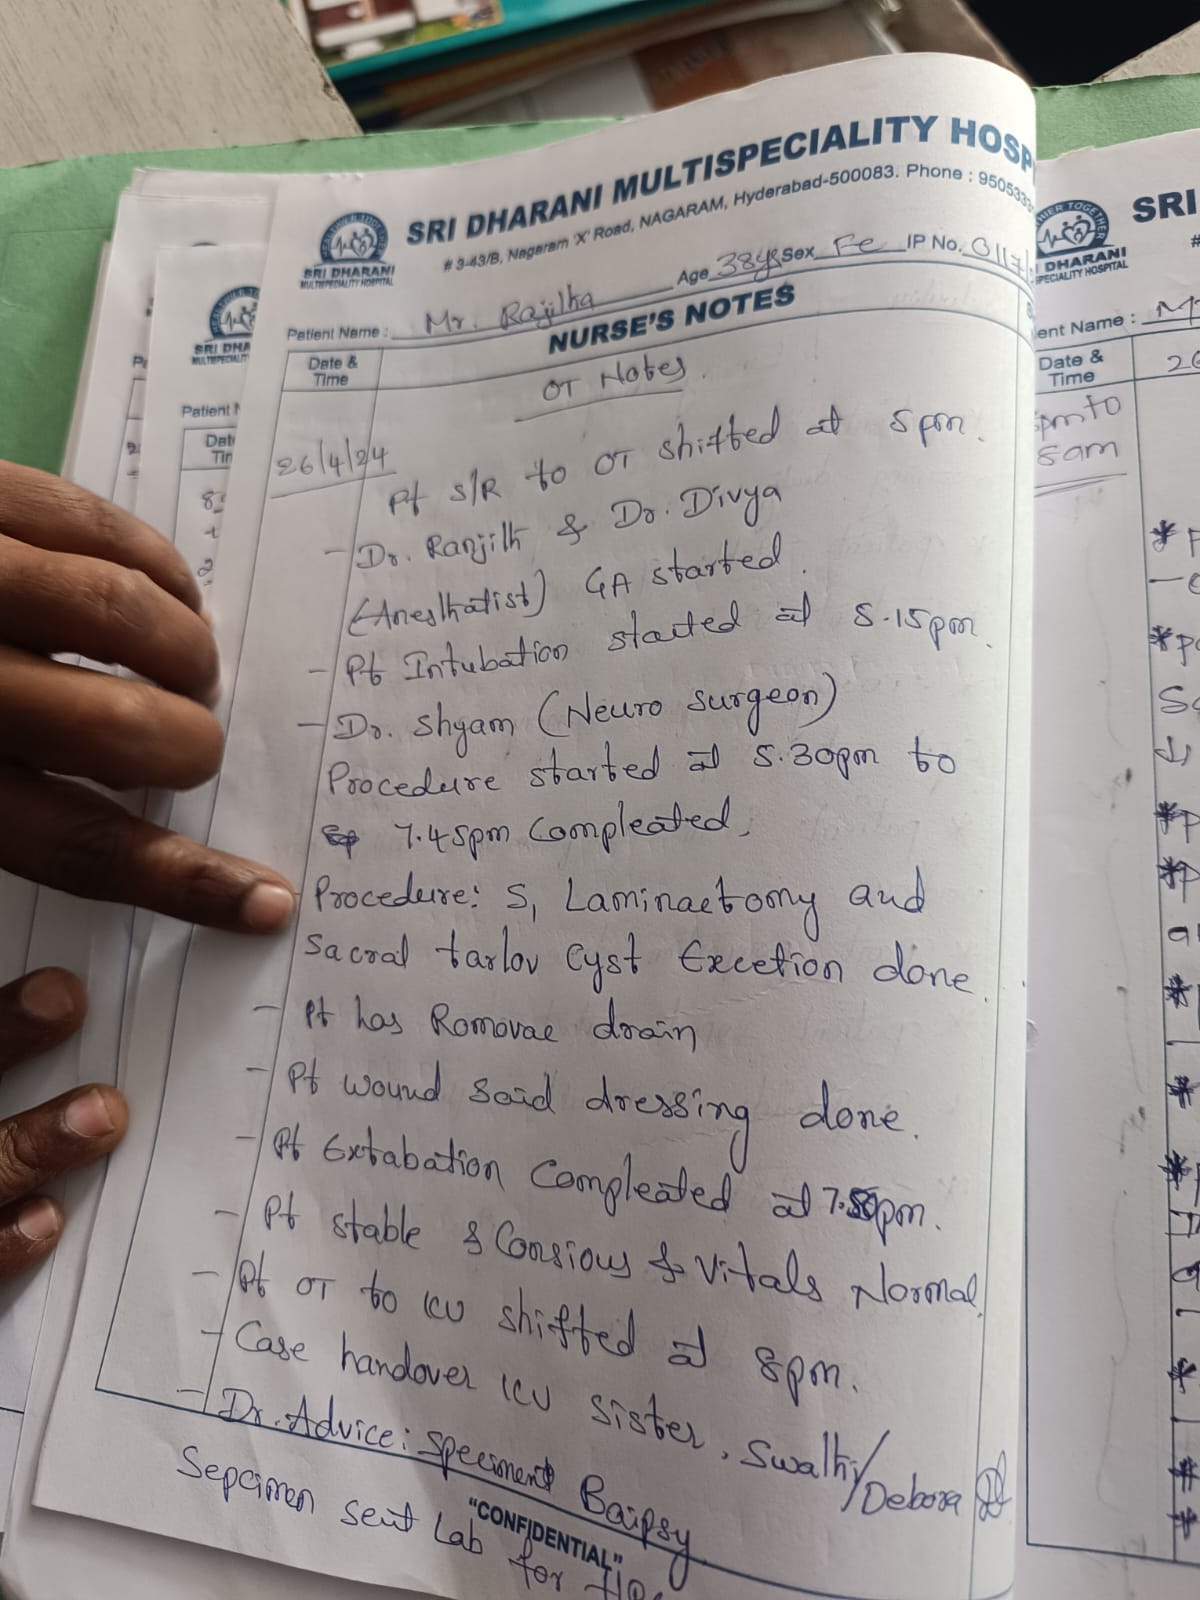 SRI DHARANI MULTISPECIALITY HOSP
# 3-43/B, Nagaram 'X' Road, NAGARAM, Hyderabad-500083. Phone : 9505333
SRI DHARANI
MULTISPECIALITY HOSPITAL
Patient Name : Mr. Rajitha Age 38ys Sex Fe IP No. 0117
NURSE'S NOTES
Date &
Time
OT Notes.
26/4/24
Pt S/R to OT shifted at 5pm.
- Dr. Ranjith & Dr. Divya
(Anesthatist) GA started.
- Pt Intubation started at 5.15pm.
- Dr. Shyam (Neuro Surgeon)
Procedure started at 5.30pm to
7.45pm Compleated.
- Procedure: S1 Laminaetomy and
Sacral tarlov Cyst Excetion done.
- Pt has Romovae drain
- Pt wound Said dressing done.
- Pt Extabation Compleated at 7.50pm.
- Pt stable & Consious & Vitals Normal.
- Pt OT to ICU shifted at 8pm.
- Case handover ICU Sister, Swathi/Debora
- Dr. Advice: Speciment Baipsy.
Sepcimen sent Lab for
"CONFIDENTIAL"
SRI
DHARANI
SPECIALITY HOSPITAL
ent Name :
Date &
Time
26
5pm to
8am
SRI DHA
MULTISPECIALIT
Patient N
Dat
Tir